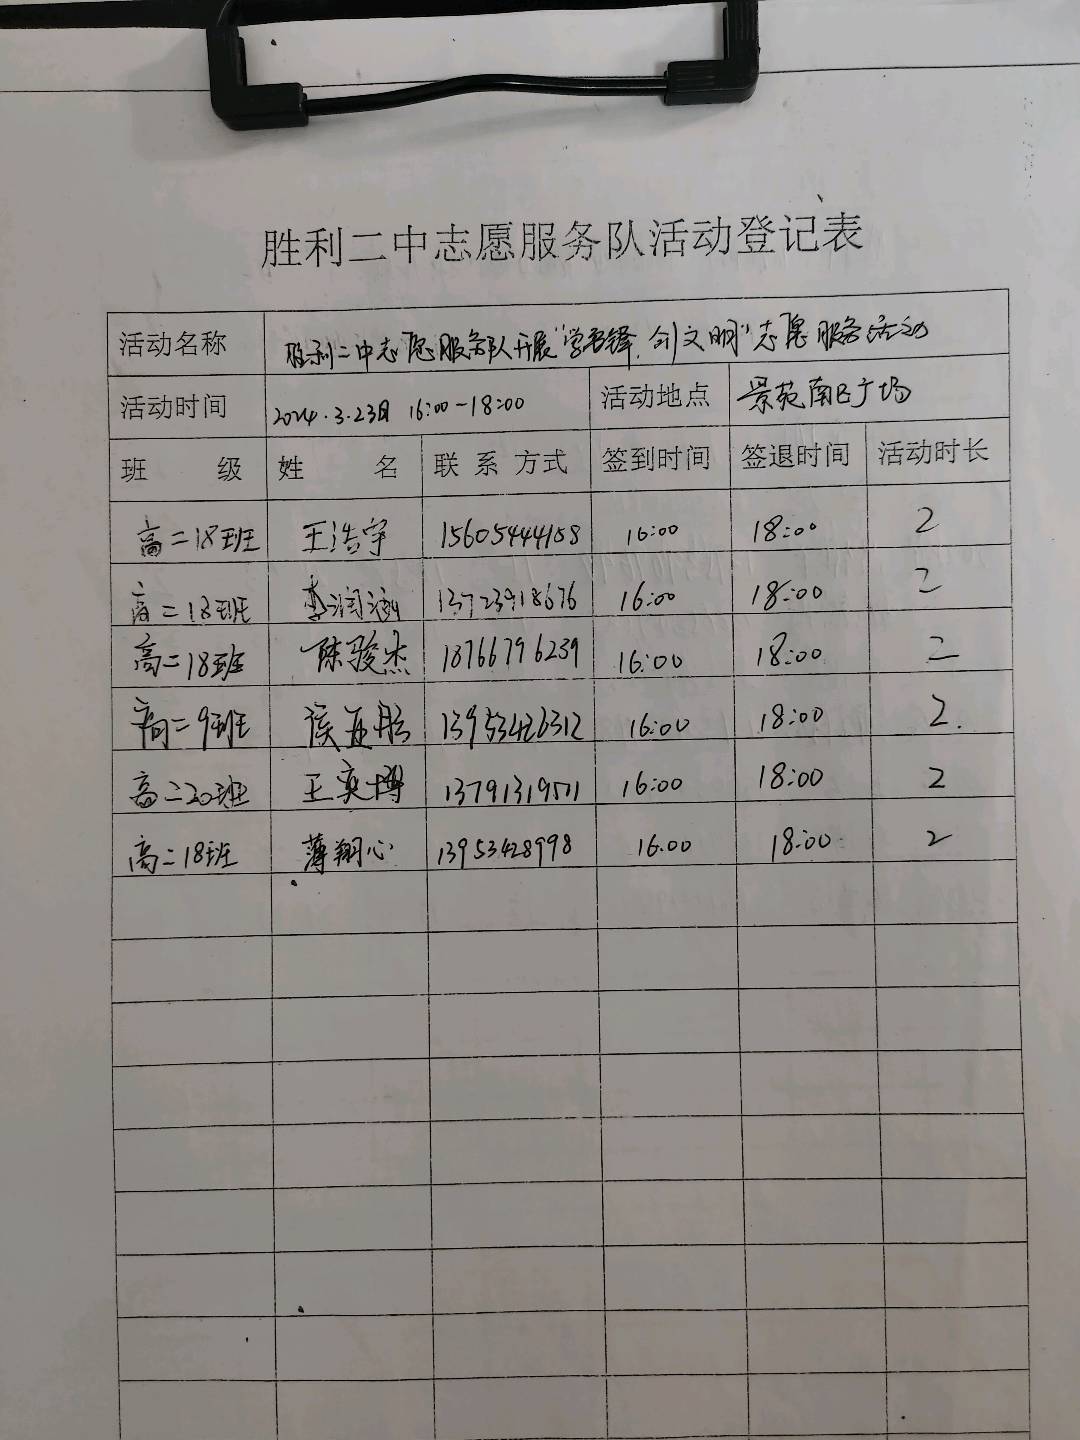 胜利二中志愿服务队活动登记表
活动名称 胜利二中志愿服务队开展"学雷锋、创文明"志愿服务活动
活动时间 2024.3.23日 16:00-18:00 活动地点 景苑南区广场
班 级 姓 名 联系方式 签到时间 签退时间 活动时长
高二18班 王浩宇 15605444158 16:00 18:00 2
高二18班 李润涵 16:00 18:00 2
高二18班 陈骏杰 18766796239 16:00 18:00 2
高二9班 侯 13953426312 16:00 18:00 2.
高二20班 王奕博 16:00 18:00 2
高二18班 薄翔心 13953428998 16.00 18:00 2